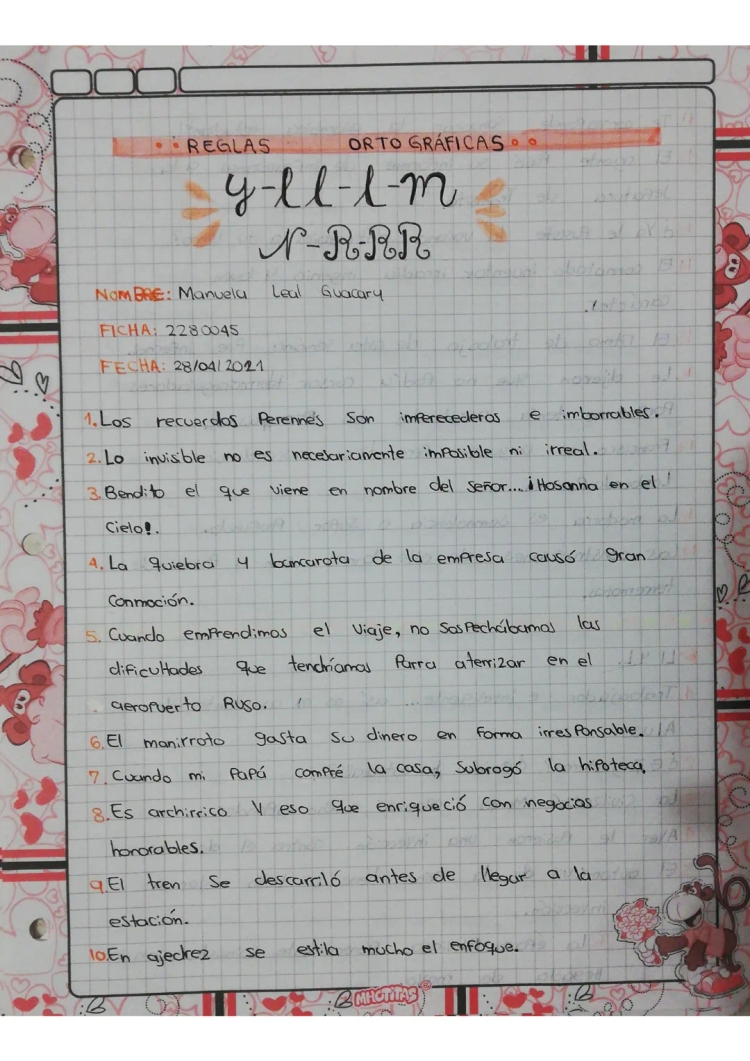 REGLAS ORTOGRÁFICAS
y-ll-l-m
N-R-RR
NOMBRE: Manuela Leal Guacary
FICHA: 2280045
FECHA: 28/04/2021
1. Los recuerdos Perennes son imperecederos e imborrables.
2. Lo invisible no es necesariamente imposible ni irreal.
3. Bendito el que viene en nombre del señor... ¡Hosanna en el
Cielo!.
4. La quiebra y bancarota de la empresa causó gran
Conmoción.
5. Cuando emprendimos el viaje, no sospechábamos las
dificultades que tendríamos Parra aterrizar en el
aeropuerto Ruso.
6. El manirroto gasta su dinero en forma irresponsable.
7. Cuando mi Papá compré la casa, Subrogó la hipoteca.
8. Es archirrico Y eso que enriqueció con negocios
honorables.
9. El tren se descarriló antes de llegar a la
estación.
10. En ajedrez se estila mucho el enfoque.
MHOTITAS